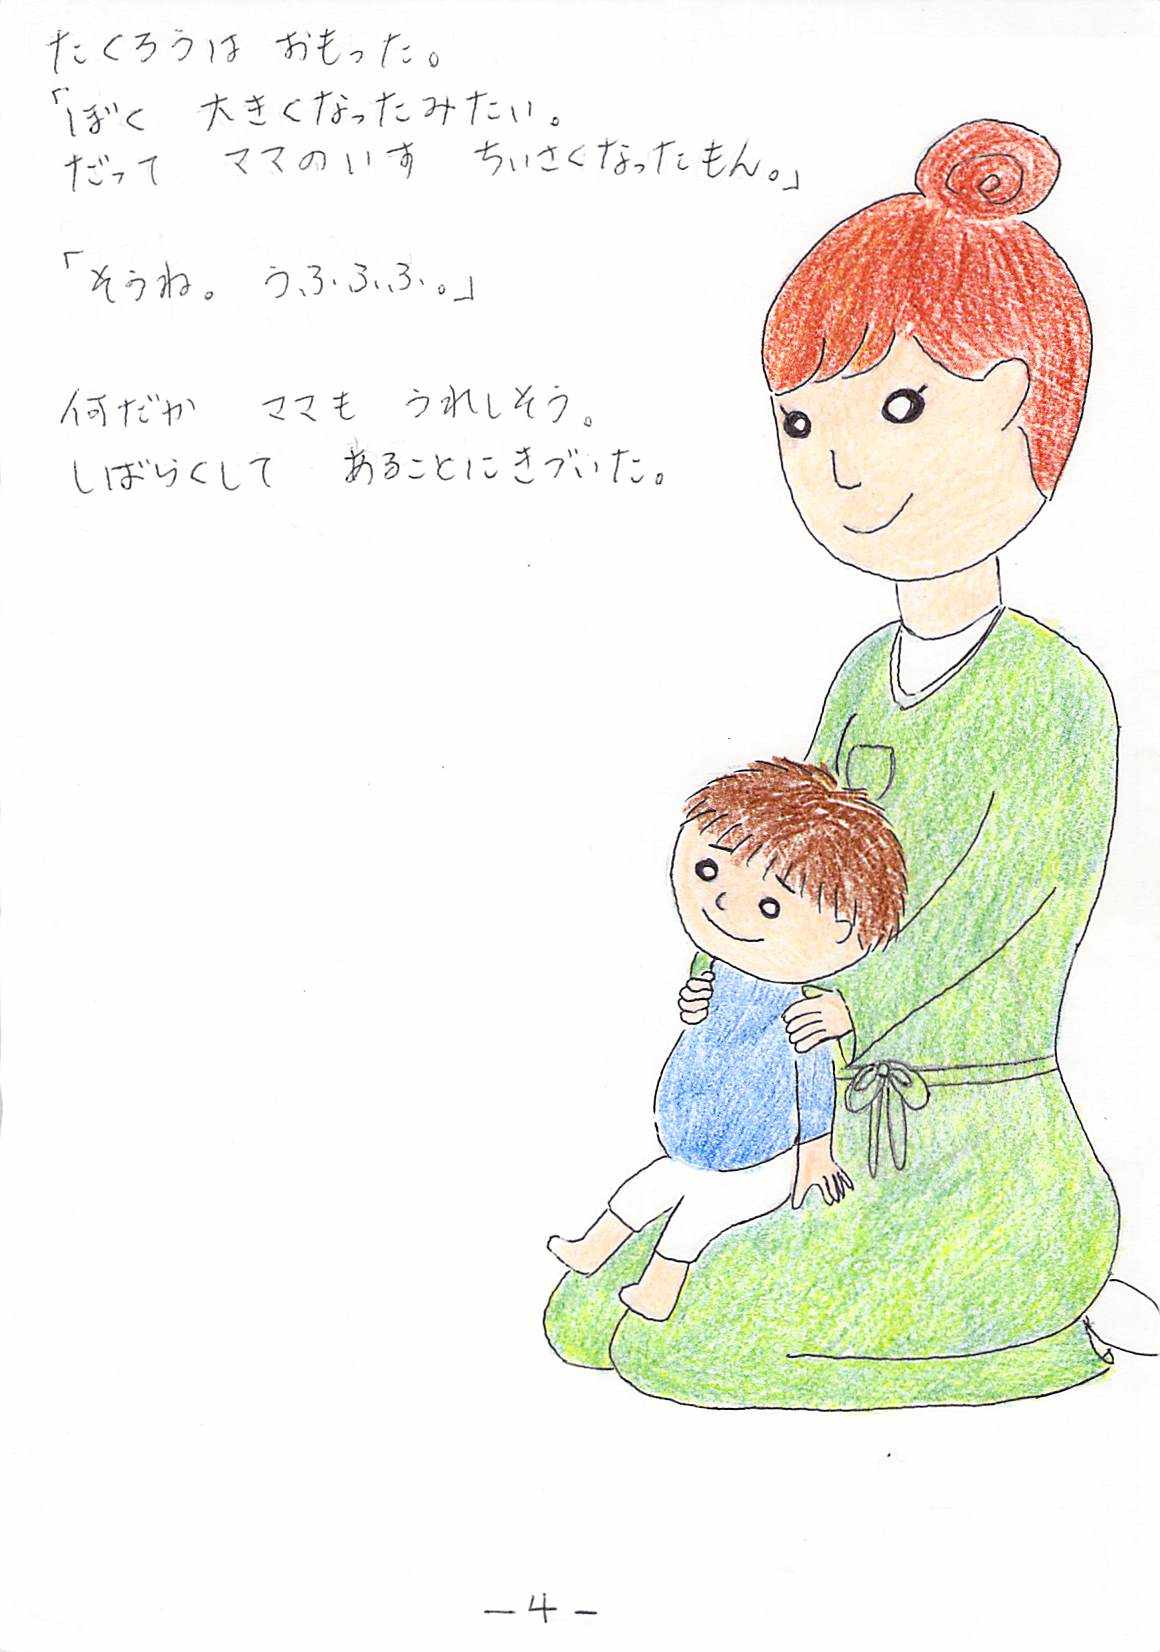 たくろうは おもった。
「ぼく 大きくなったみたい。
だって ママのいす ちいさくなったもん。」
「そうね。 うふふふ。」
何だか ママも うれしそう。
しばらくして あることにきづいた。
－4－